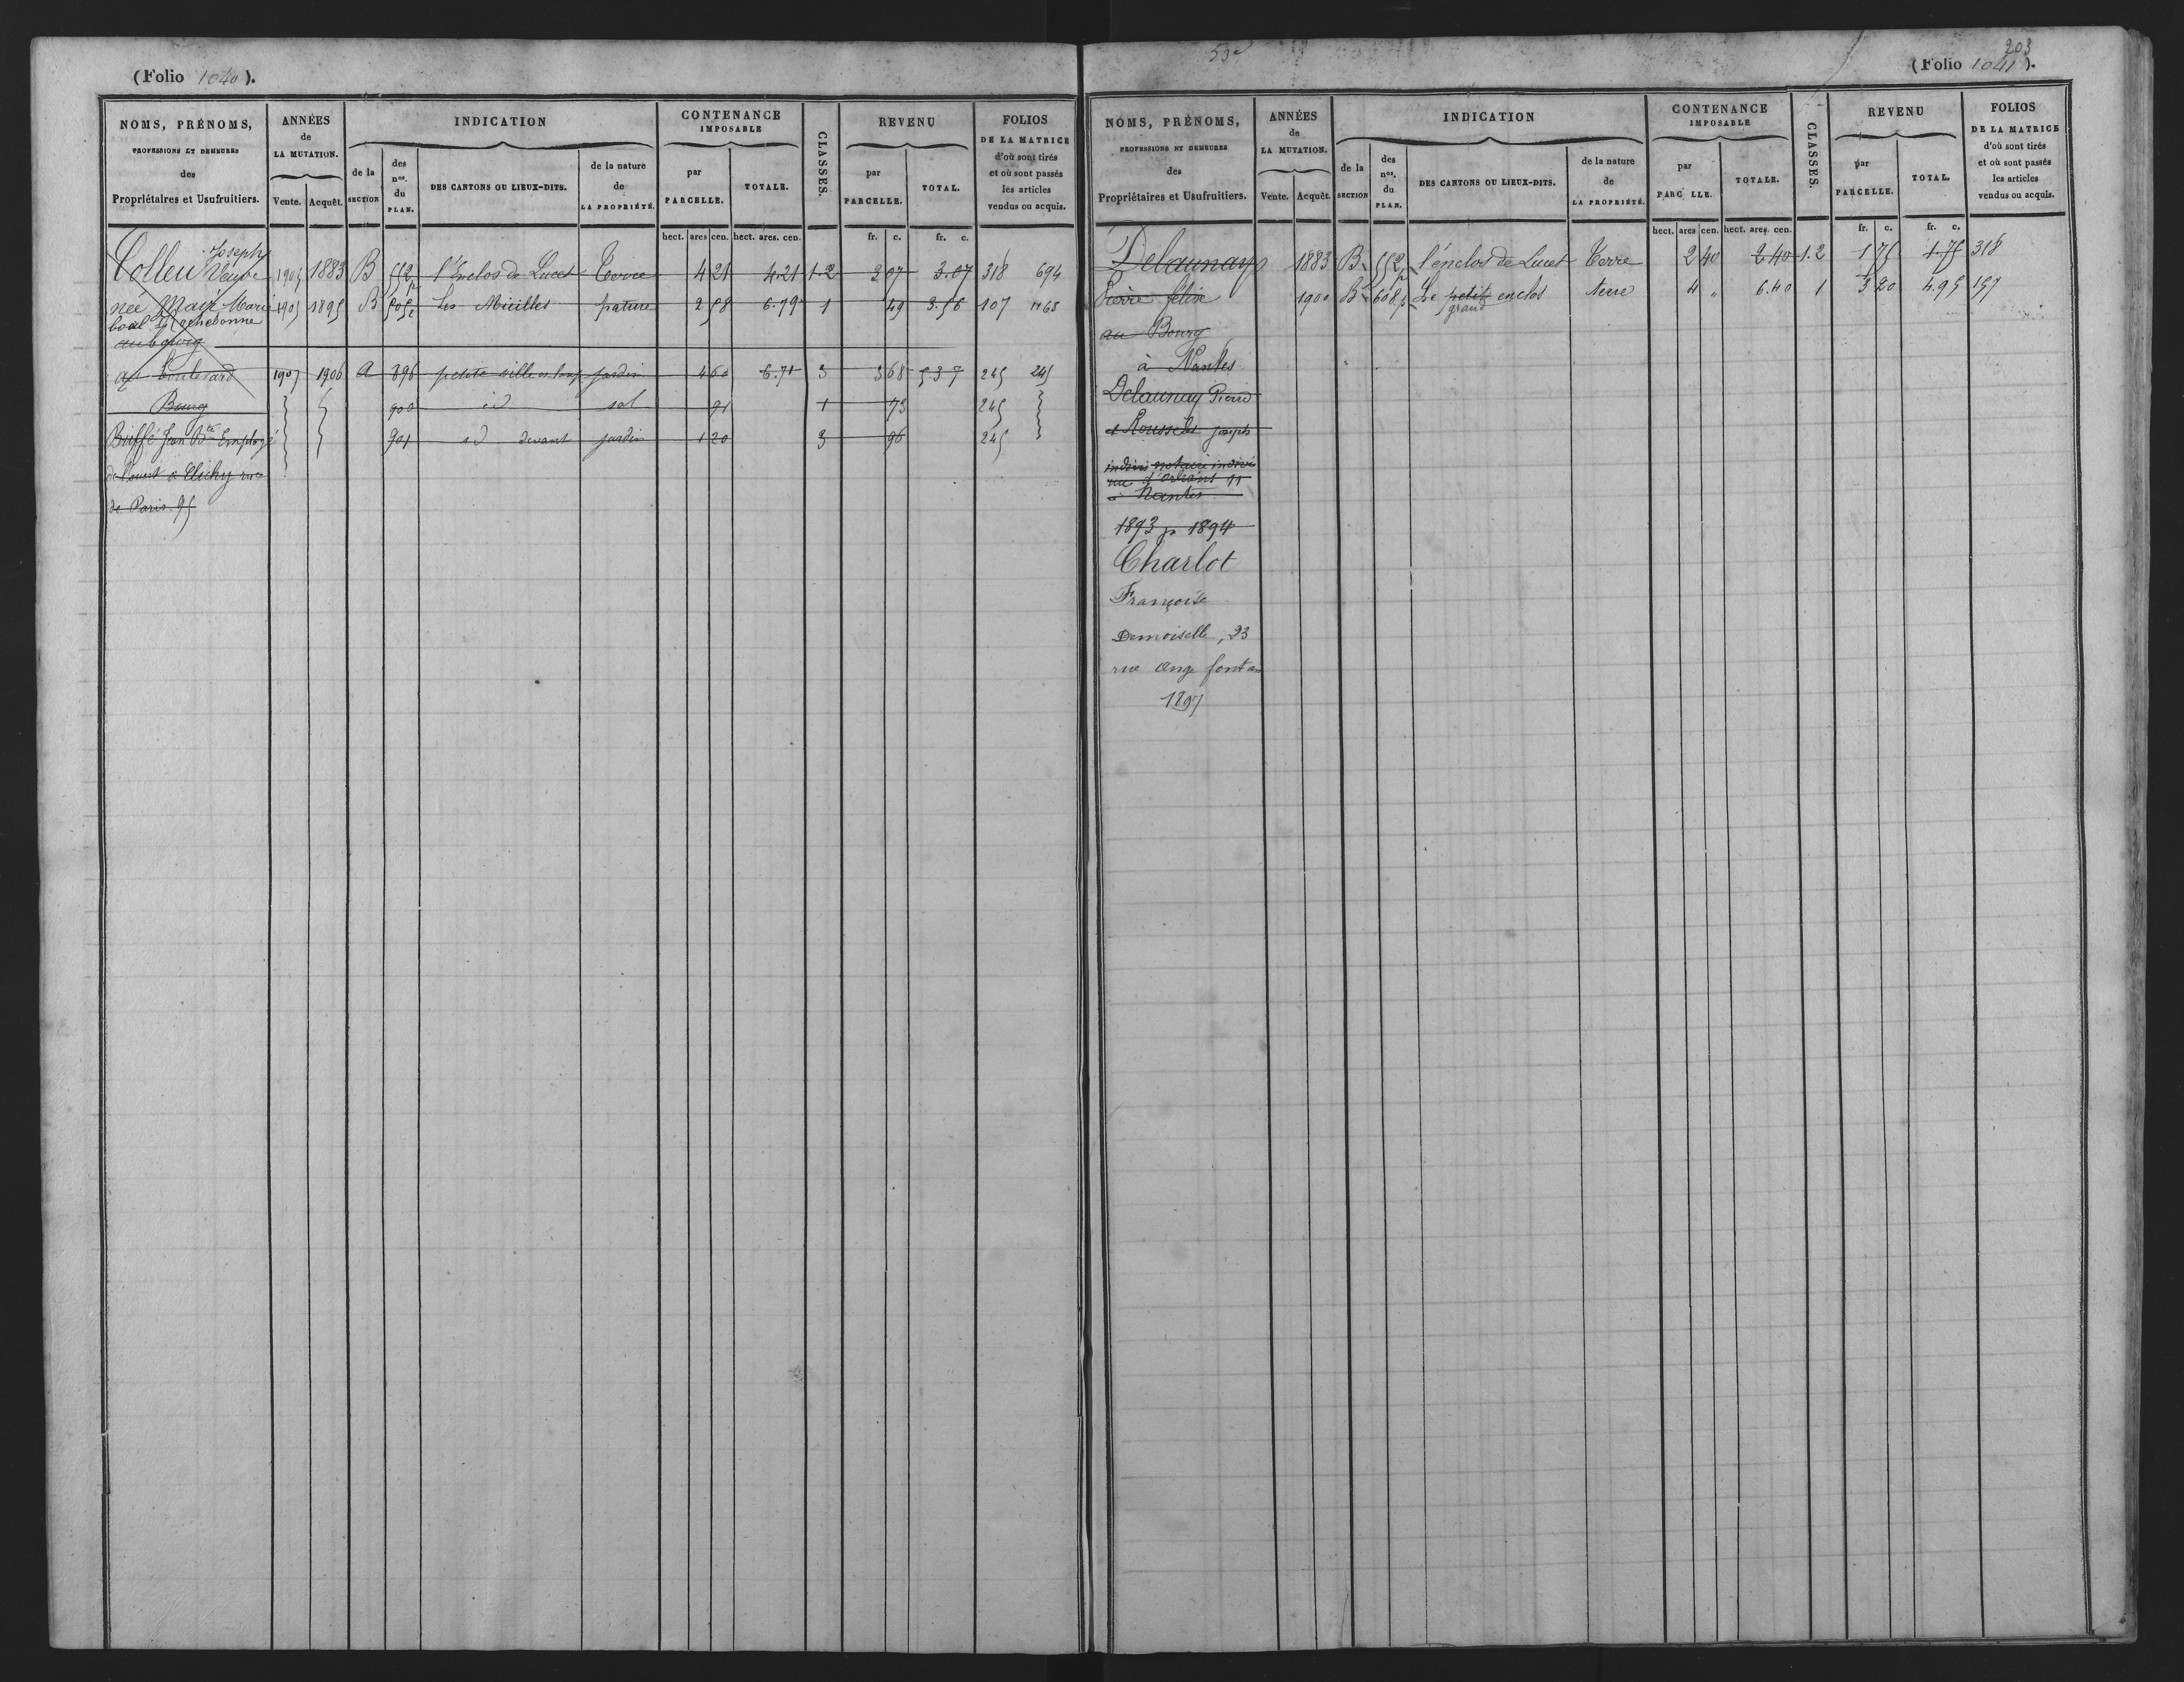 (Folio 1040).
NOMS, PRÉNOMS,
PROFESSIONS ET DEMEURES
des
Propriétaires et Usufruitiers.
ANNÉES
de
LA MUTATION.
Vente. Acquêt.
INDICATION
de la
SECTION
des
nos.
du
PLAN.
DES CANTONS OU LIEUX-DITS.
de la nature
de
LA PROPRIÉTÉ.
CONTENANCE
IMPOSABLE
par
PARCELLE.
TOTALE.
CLASSES.
REVENU
par
PARCELLE.
TOTAL.
FOLIOS
DE LA MATRICE
d'où sont tirés
et où sont passés
les articles
vendus ou acquis.
hect. ares cen. hect. ares. cen. fr. c. fr. c.
Colleu Joseph
Veuve 1905 1883 B 552p l'Enclos de Lucet Terre 4 21 4.21 1.2 3 07 3.07 318 694
née Marie 1905 1895 B 505 Les Mieilles pature 2 58 6.79 1 49 3.56 107 1168
au bourg
au boulevard 1907 1906 A 896 petite ville en jardin 4 60 6.71 3 3 68 5 37 245 245
Bourg 900 id sol 91 1 73 245
Buffé Jean Bte Employé 901 id devant jardin 1 20 3 96 245
de l'ouest à Clichy rue
de Paris 95
53e
203
(Folio 1041).
NOMS, PRÉNOMS,
PROFESSIONS ET DEMEURES
des
Propriétaires et Usufruitiers.
ANNÉES
de
LA MUTATION.
Vente. Acquêt.
INDICATION
de la
SECTION
des
nos.
du
PLAN.
DES CANTONS OU LIEUX-DITS.
de la nature
de
LA PROPRIÉTÉ.
CONTENANCE
IMPOSABLE
par
PARC LLE.
TOTALE.
CLASSES.
REVENU
par
PARCELLE.
TOTAL.
FOLIOS
DE LA MATRICE
d'où sont tirés
et où sont passés
les articles
vendus ou acquis.
hect. ares cen. hect. ares. cen. fr. c. fr. c.
Delaunay 1883 B 552p l'enclos de Lucet Terre 2 40 2 40 1.2 1 75 1.75 318
Pierre félix 1900 B 608p Le petit enclos terre 4 " 6.40 1 3 20 4.95 157
grand
au Bourg
à Nantes
Delaunay Pierre
et Rousselet joseph
indivis notaire indivi
rue d'orléans 11
à Nantes
1893 pr 1894
Charlot
Françoise
Demoiselle, 23
rue
1897